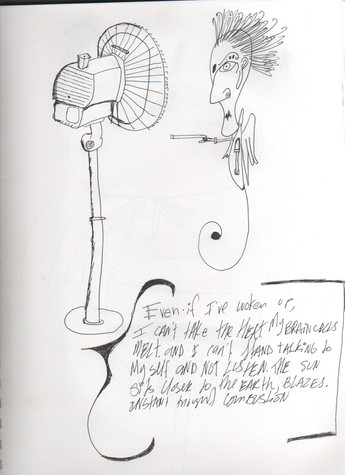 Even if I've woken up,
I can't take the Heat My BRAIN
MELT and I can't STAND TALKING to
Myself AND NOT LISTEN. THE SUN
sits closer to the EARTH, BLAZES.
instant combustion